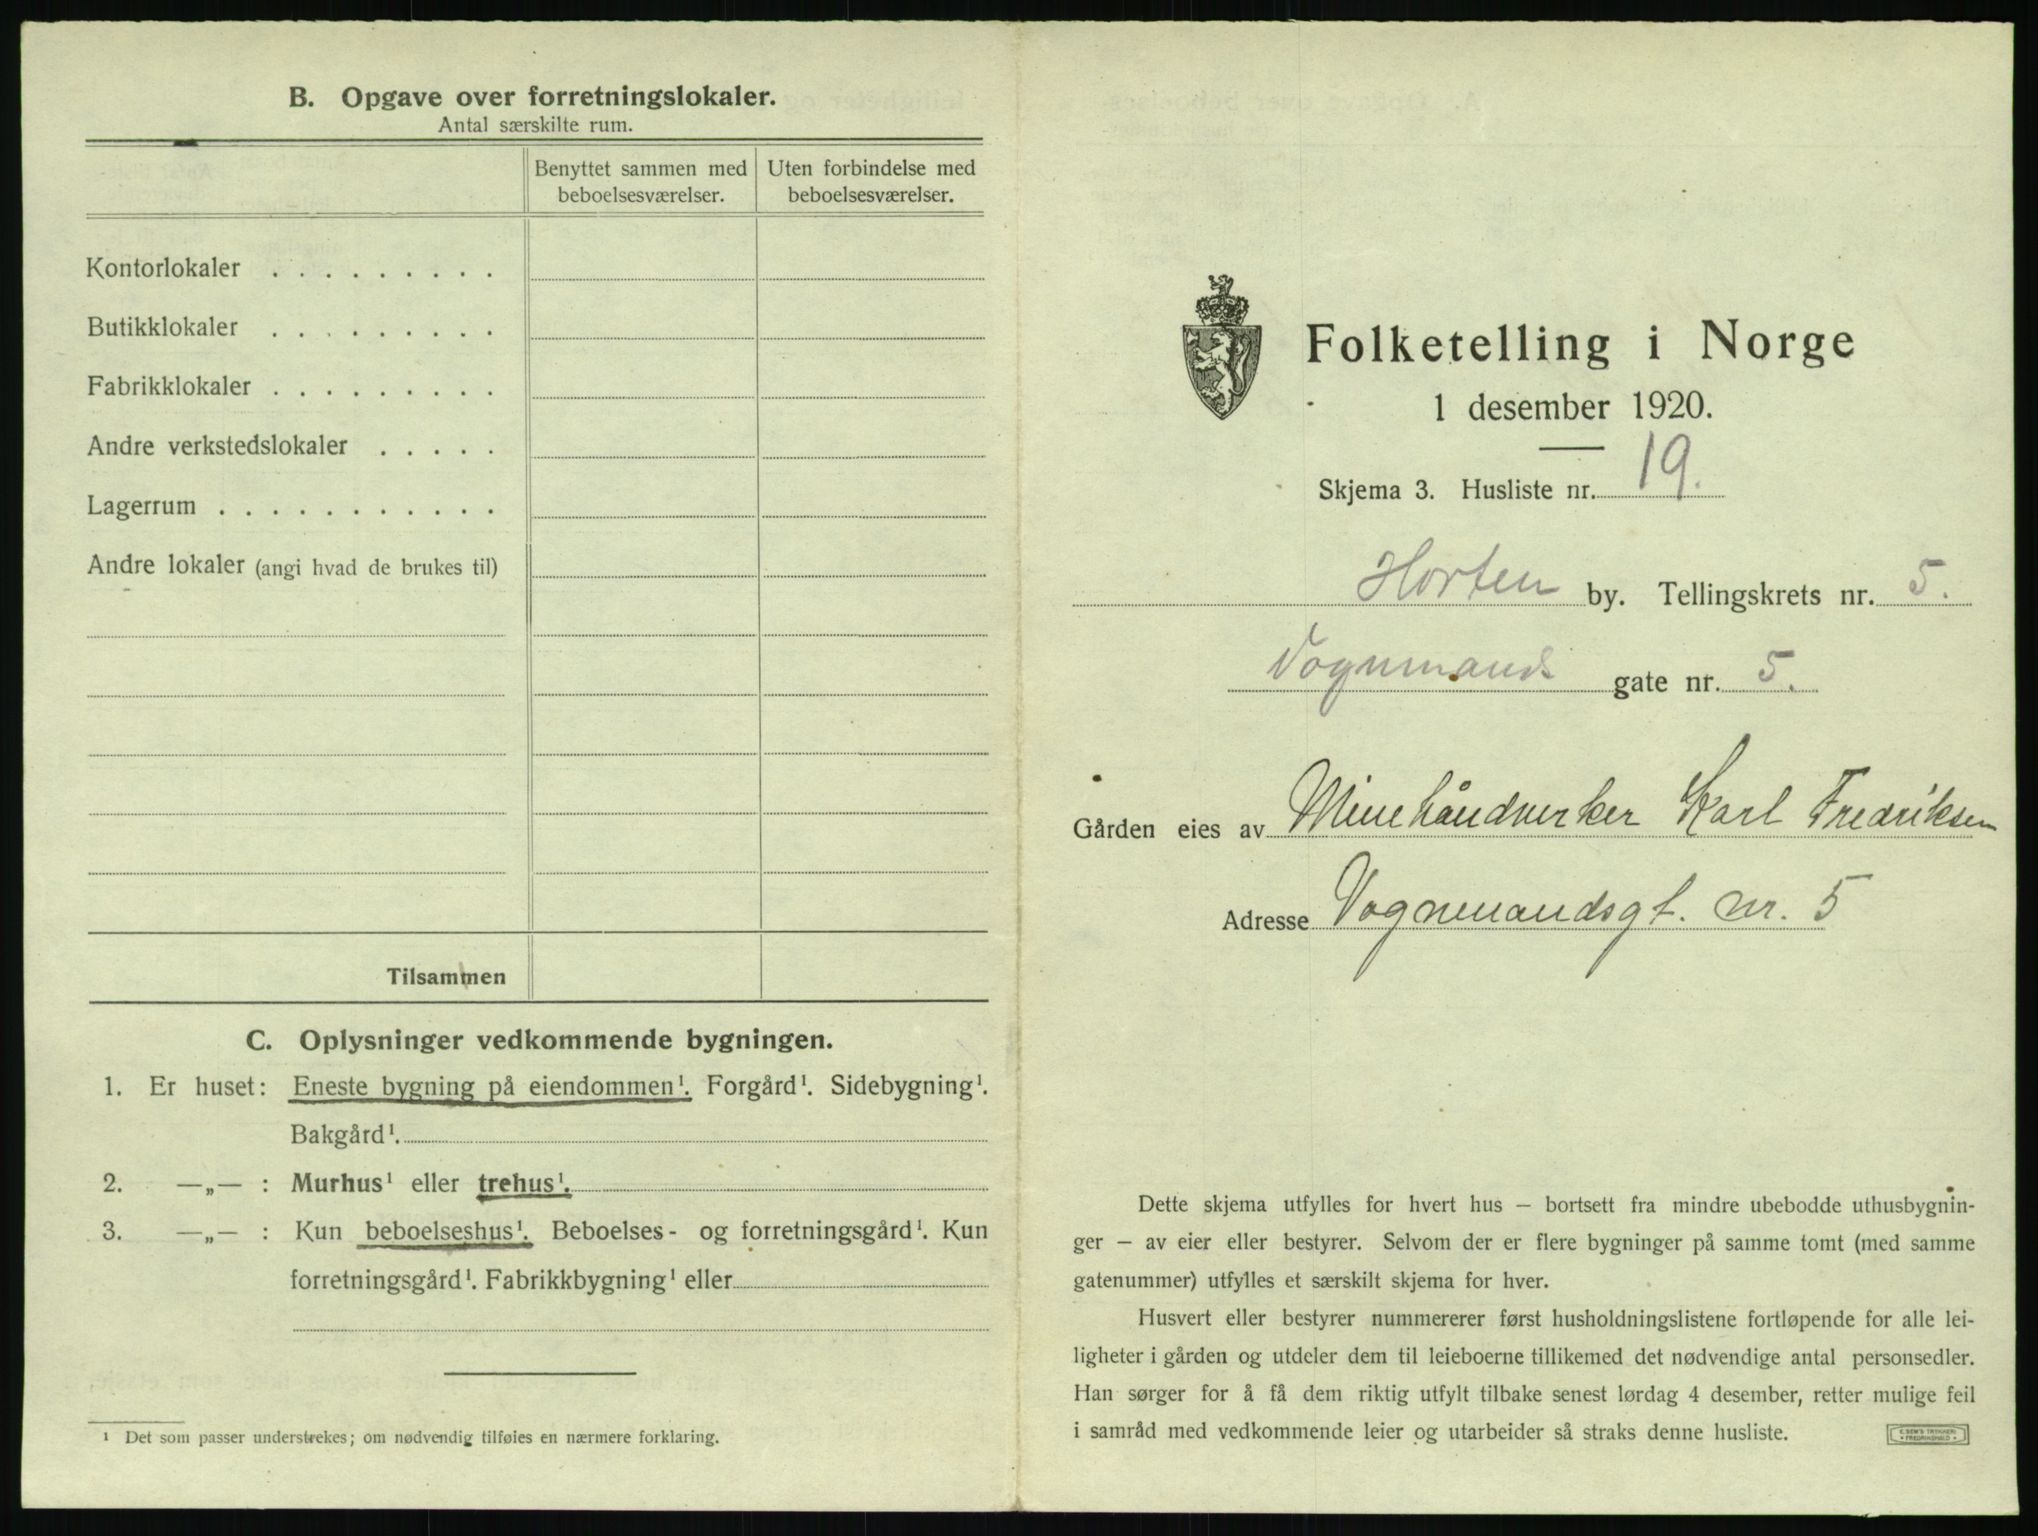 B. Opgave over forretningslokaler.
Antal særskilte rum.
Benyttet sammen med beboelsesværelser.
Uten forbindelse med beboelsesværelser.
Kontorlokaler . . . . . . . . .
Butikklokaler . . . . . . . . .
Fabrikklokaler . . . . . . . . .
Andre verkstedslokaler . . . . .
Lagerrum . . . . . . . . . . .
Andre lokaler (angi hvad de brukes til)
Tilsammen
C. Oplysninger vedkommende bygningen.
1. Er huset: Eneste bygning på eiendommen¹. Forgård¹. Sidebygning¹.
Bakgård¹.
2. —„— : Murhus¹ eller trehus¹.
3. —„— : Kun beboelseshus¹. Beboelses- og forretningsgård¹. Kun
forretningsgård¹. Fabrikkbygning¹ eller
¹ Det som passer understrekes; om nødvendig tilføies en nærmere forklaring.
Folketelling i Norge
1 desember 1920.
Skjema 3. Husliste nr. 19.
Horten by. Tellingskrets nr. 5.
Vognmands gate nr. 5.
Gården eies av Minehåndverker Karl Fredriksen
Adresse Vognmandsgt. nr. 5
Dette skjema utfylles for hvert hus — bortsett fra mindre ubebodde uthusbygnin-
ger — av eier eller bestyrer. Selvom der er flere bygninger på samme tomt (med samme
gatenummer) utfylles et særskilt skjema for hver.
Husvert eller bestyrer nummererer først husholdningslistene fortløpende for alle lei-
ligheter i gården og utdeler dem til leieboerne tillikemed det nødvendige antal personsedler.
Han sørger for å få dem riktig utfylt tilbake senest lørdag 4 desember, retter mulige feil
i samråd med vedkommende leier og utarbeider så straks denne husliste.
E. SEM'S TRYKKERI
FREDRIKSHALD